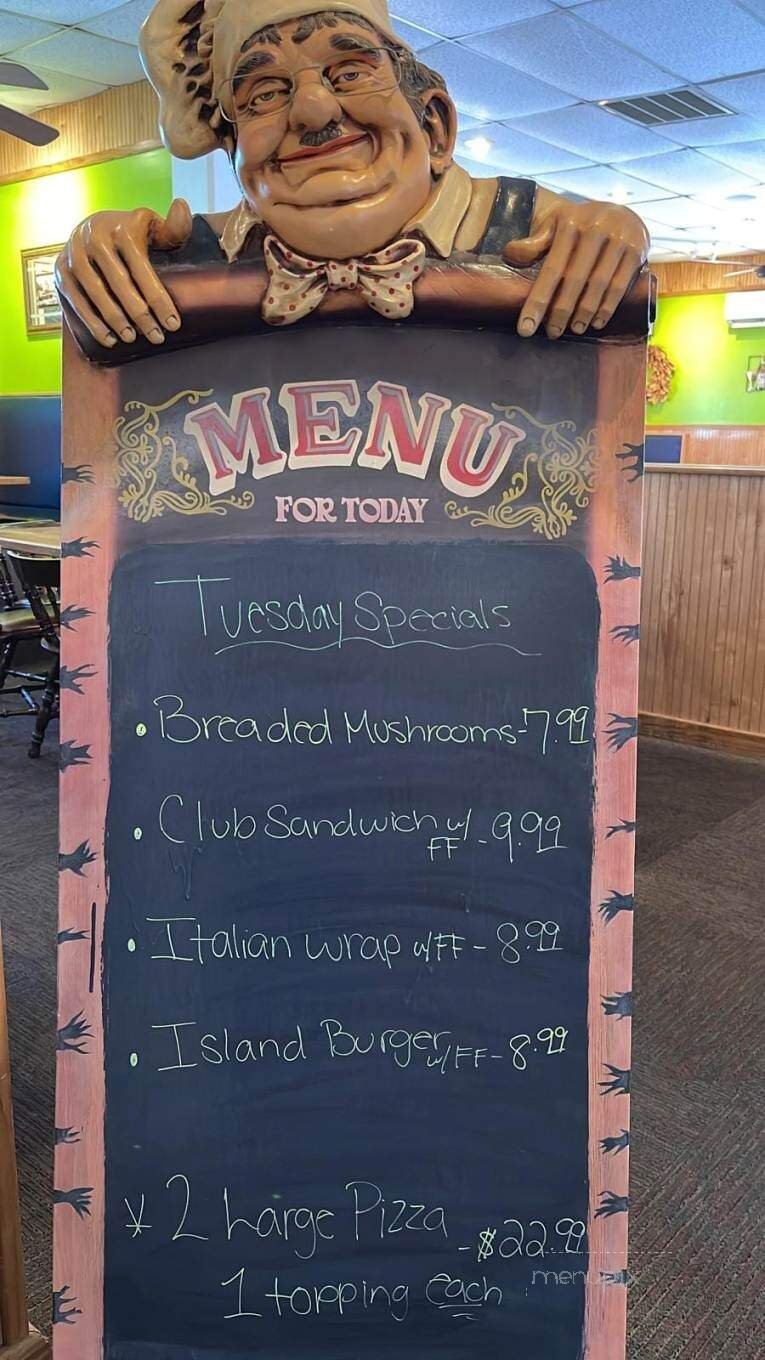 MENU
FOR TODAY
Tuesday Specials
• Breaded Mushrooms - 7.99
• Club Sandwich w/ FF - 9.99
• Italian wrap w/FF - 8.99
• Island Burger w/FF - 8.99
* 2 Large Pizza - $22.99
1 topping each
menupix